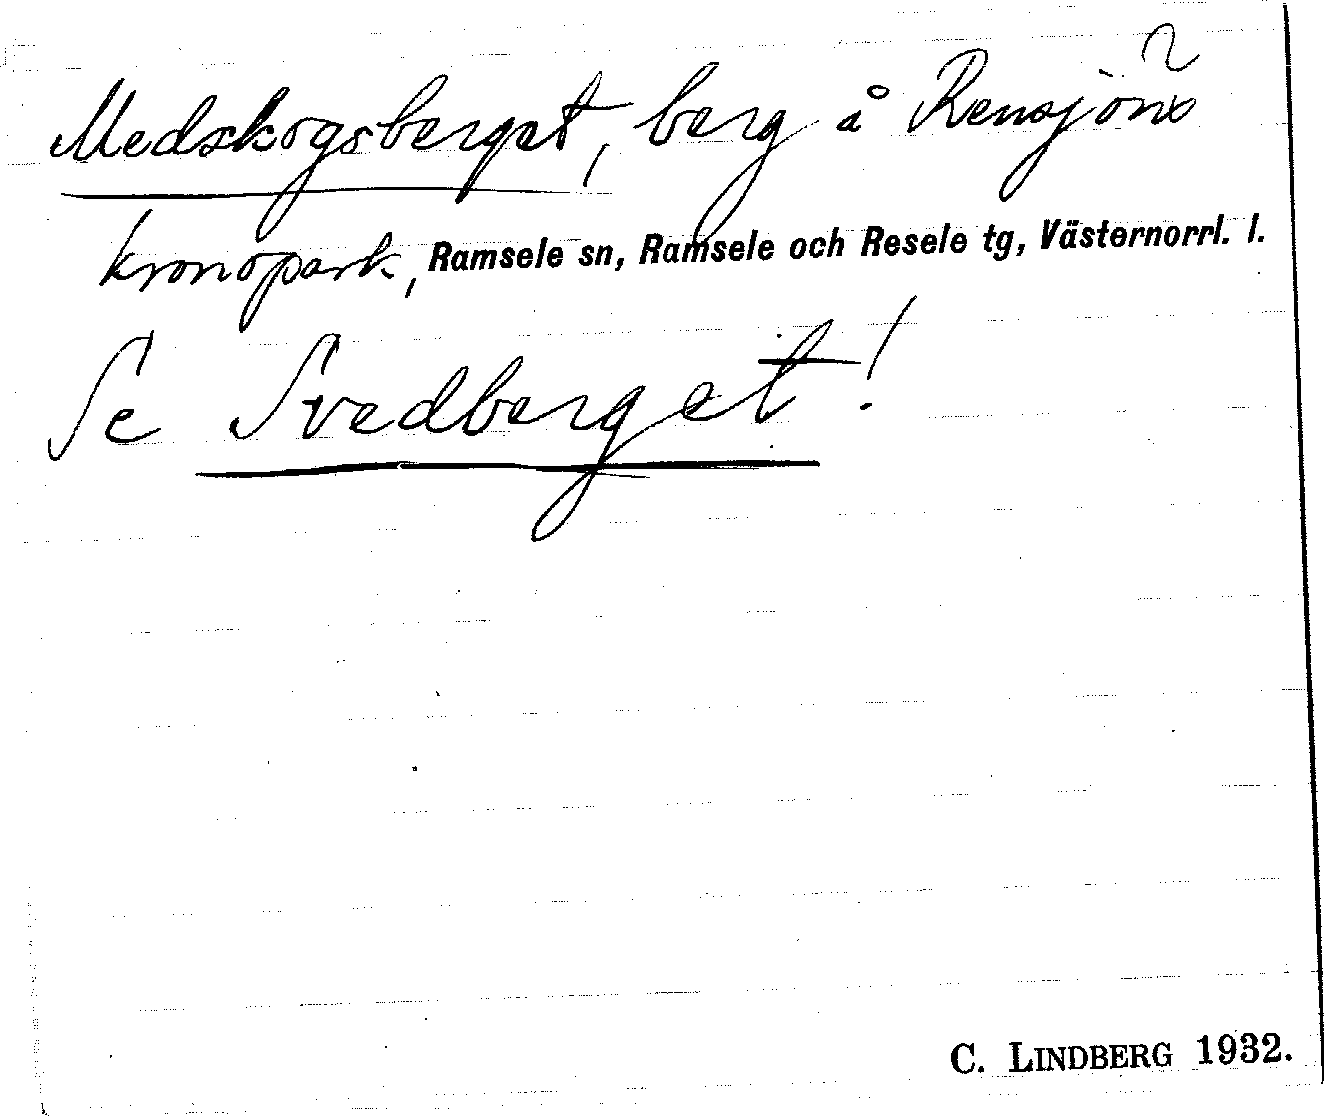 Medskogsberget, berg å Rensjöns
kronopark, Ramsele sn, Ramsele och Resele tg, Västernorrl. l.
Se Svedberget!
C. LINDBERG 1932.